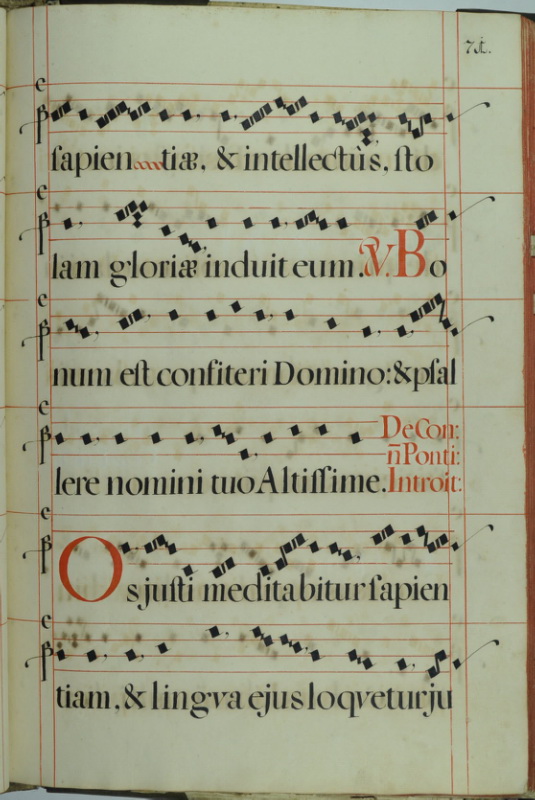 sapientiæ, & intellectùs, sto
lam gloriæ induit eum. V. Bo
num est confiteri Domino: & psal
lere nomini tuo Altissime. De Con:
n̄ Ponti:
Introit:
Os justi meditabitur sapien
tiam, & lingva ejus loqvetur ju